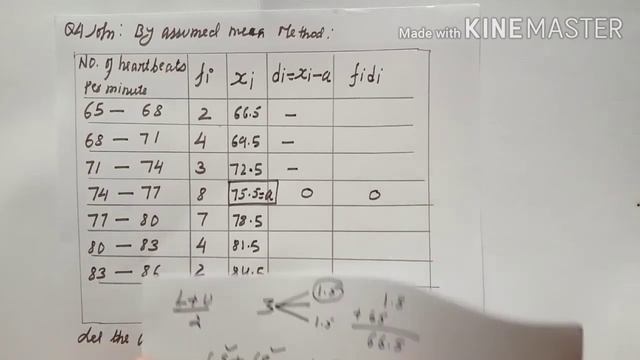 Q4 Soln: By assumed mean Method:
Made with KINEMASTER
No. of heartbeats per minute fi xi di=xi-a fidi
65 – 68 2 66.5 –
68 – 71 4 69.5 –
71 – 74 3 72.5 –
74 – 77 8 75.5=a 0 0
77 – 80 7 78.5
80 – 83 4 81.5
83 – 86 2 84.5
L+U
2
3
1.5
1.5
1.5
+ 65
66.5
Let the